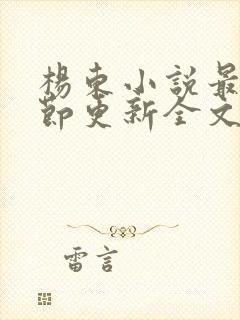 楊東小說最
節更新全文
雷言